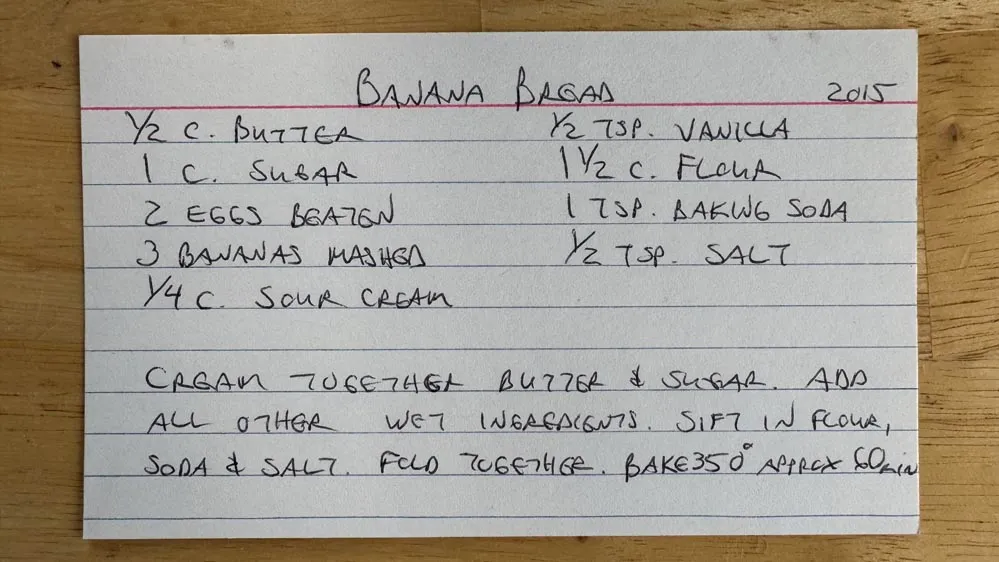 BANANA BREAD 2015
1/2 C. BUTTER 1/2 TSP. VANILLA
1 C. SUGAR 1 1/2 C. FLOUR
2 EGGS BEATEN 1 TSP. BAKING SODA
3 BANANAS MASHED 1/2 TSP. SALT
1/4 C. SOUR CREAM
CREAM TOGETHER BUTTER & SUGAR. ADD
ALL OTHER WET INGREDIENTS. SIFT IN FLOUR,
SODA & SALT. FOLD TOGETHER. BAKE 350° APPROX 60 MIN